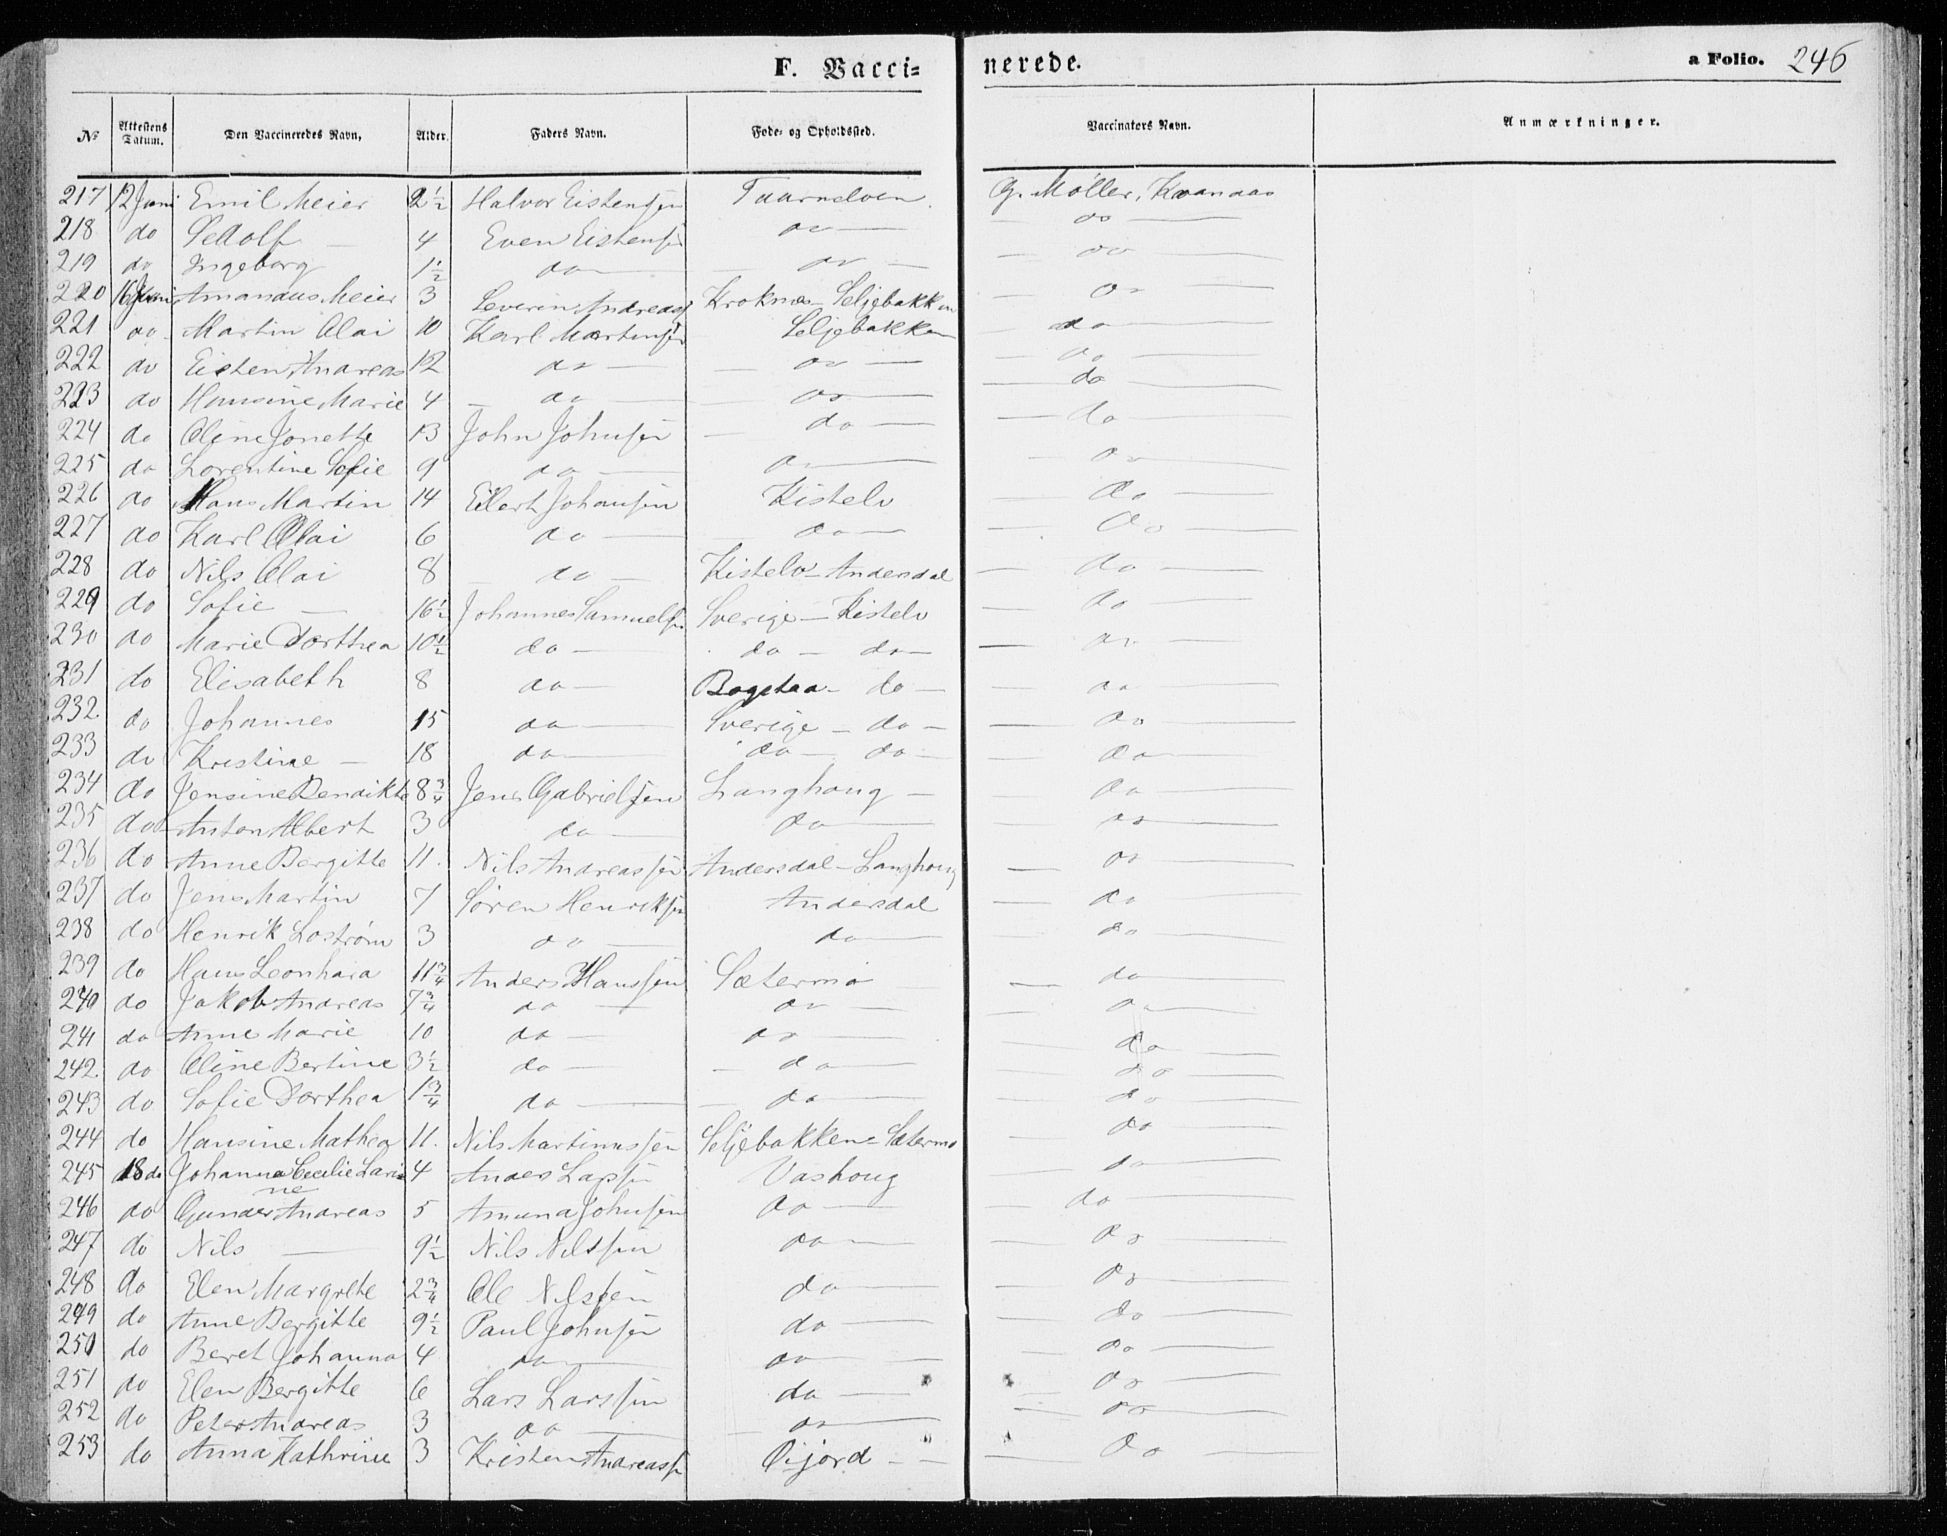 F. Vacci-
nerede.
a Folio. 246
No Attestens Datum. Den Vaccineredes Navn, Alder. Faders Navn. Føde- og Opholdssted. Vaccinators Navn. Anmærkninger.
217 12 Juni Emil Meier 2½ Halvor Eistensen G. Møller, Kvanaas
218 do Adolf — 4 Even Eistensen do — do —
219 do Ingeborg 1½ do — do — do —
220 16 Juni Amandus Meier 3 Severin Andreas Kroknes – Seljebakken do —
221 do Martin Olai 10 Karl Martinsen Seljebakken do —
222 do Eisten Andreas 12 do — do — do —
223 do Hansine Marie 4 do — do — do —
224 do Oline Jonette 13 John Johnsen do — do —
225 do Lorentine Sofie 9 do — do — do —
226 do Hans Martin 14 Eilert Johansen Kistelv do —
227 do Karl Olai 6 do — do — do —
228 do Nils Olai 8 do — Kistelv – Andersdal do —
229 do Sofie — 16½ Johannes Samuelsen Sverige – Kistelv do —
230 do Marie Dorthea 10½ do — do — do — do —
231 do Elisabeth 8 do — do — do —
232 do Johannes 15 do — Sverige – do – do —
233 do Kristine — 18 do — do — do — do —
234 do Jensine Bendikte 8¾ Jens Gabrielsen Langhaug — do —
235 do Anton Albert 3 do — do — do —
236 do Anne Bergitte 11. Nils Andreassen Andersdal – Langhaug do —
237 do Jens Martin 7 Søren Henriksen Andersdal do —
238 do Henrik Lostrøm 3 do — do — do —
239 do Hans Leonhard 11¾ Anders Hanssen Sætermo do —
240 do Jakob Andreas 7¾ do — do — do —
241 do Anne Marie 10 do — do — do —
242. do Oline Bertine 3½ do — do — do —
243 do Sofie Dorthea 1¾ do — do — do —
244 do Hansine Mathea 11. Nils Martinussen Seljebakken – Sætermo do —
245 18 do Johanna Cecilie Lari= 4 Anders Vashoug do —
ne
246 do Gunder Andreas 5 Amund Johnsen do — do —
247 do Nils — 9½ Nils Nilssen do — do —
248 do Elen Margrete 2¾ Ole Nilssen do — do —
249 do Anne Bergitte 9½ Paul Johnsen do — do —
250 do Beret Johanna 4 do — do — do —
251 do Elen Bergitte 6 Lars Larssen do — do —
252 do Peter Andreas 3 do — do — do —
253 do Anna Kathrine 3 Kristen Andreassen do —